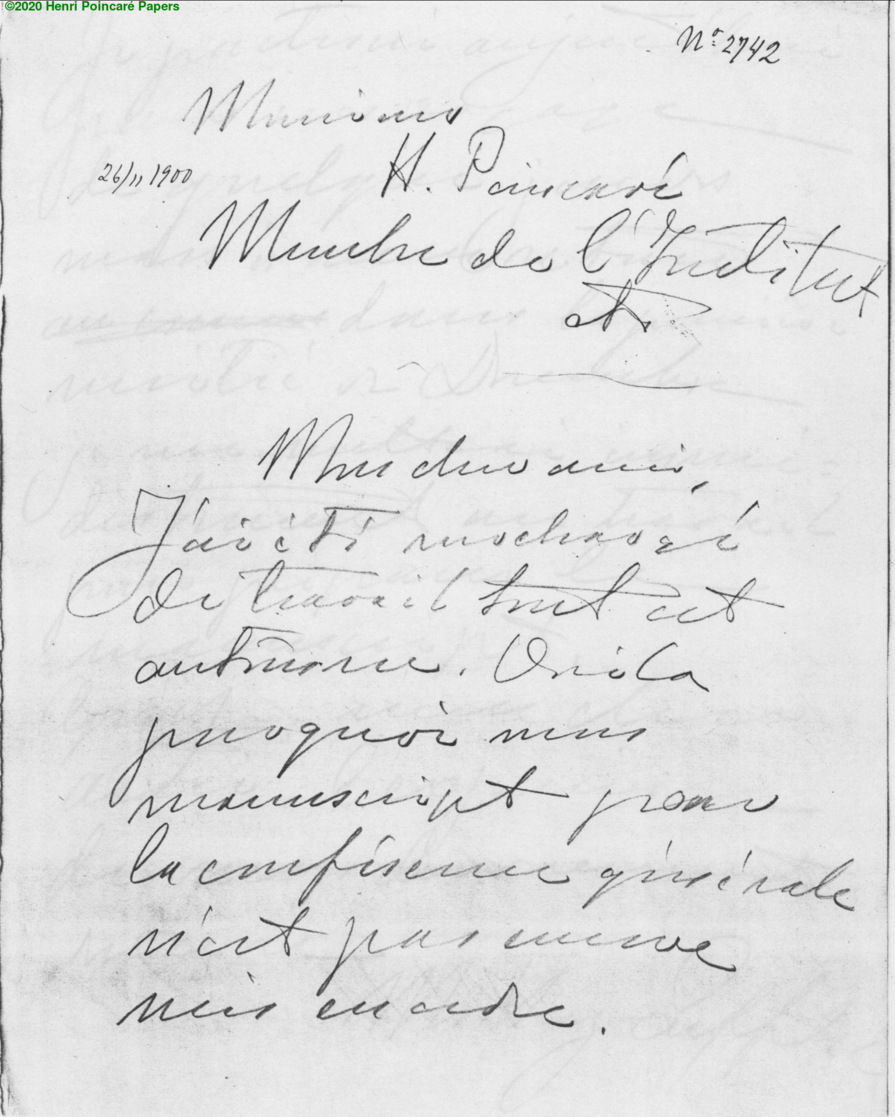 ©2020 Henri Poincaré Papers
Nº 2742
Monsieur
26/11 1900
H. Poincaré
Membre de l'Institut
etc
Mon cher ami,
J'ai été surchargé
de travail tout cet
automne. Voila
pourquoi mon
manuscript pour
la conférence générale
n'est pas encore
mis en ordre.